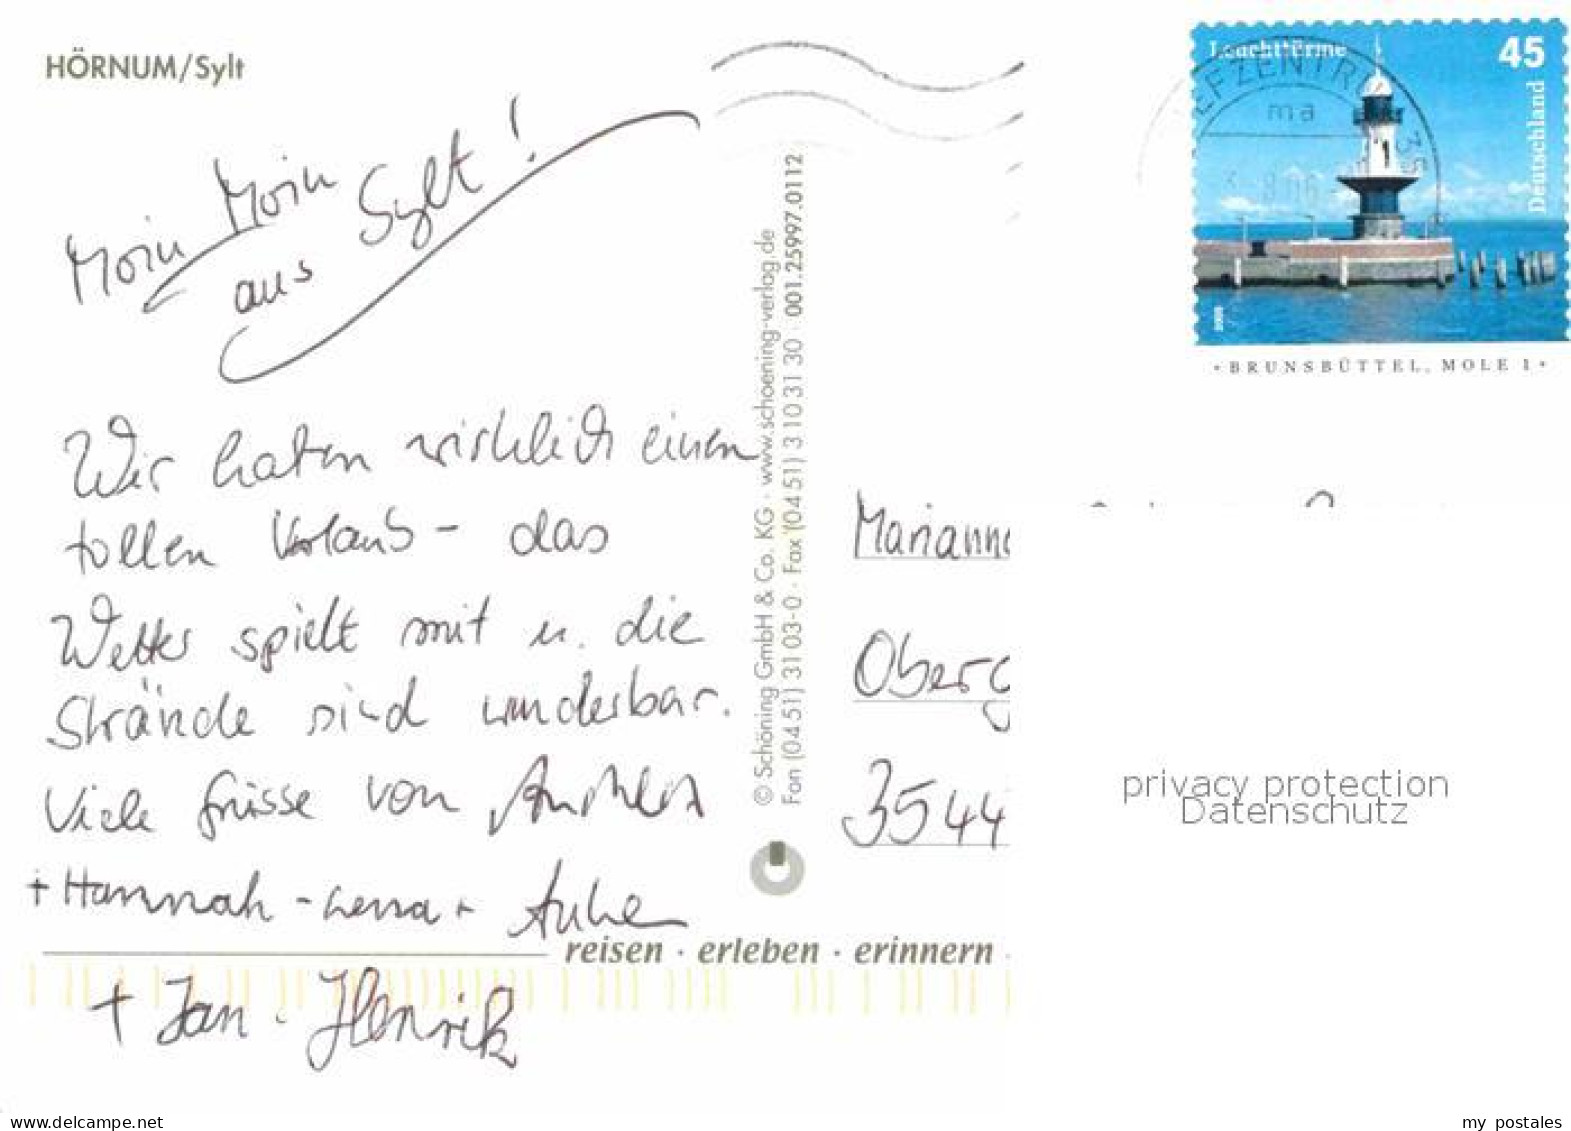 HÖRNUM/Sylt
Moin Moin
aus Sylt!
Wir haben wirklich einen
tollen Urlaub - das
Wetter spielt mit u. die
Strände sind wunderbar.
Viele Grüsse von
+ Hannah-Lena +
+ Jan-Henrik
reisen · erleben · erinnern
© Schöning GmbH & Co. KG · www.schoening-verlag.de
Fon (04 51) 31 03-0 · Fax (04 51) 3 10 31 30 · 001.25997.0112
Leuchttürme 45
Deutschland
EFZENTRU
ma
35
BRUNSBÜTTEL, MOLE 1
Marianne
Oberg
3544
privacy protection
Datenschutz
delcampe.net
my_postales